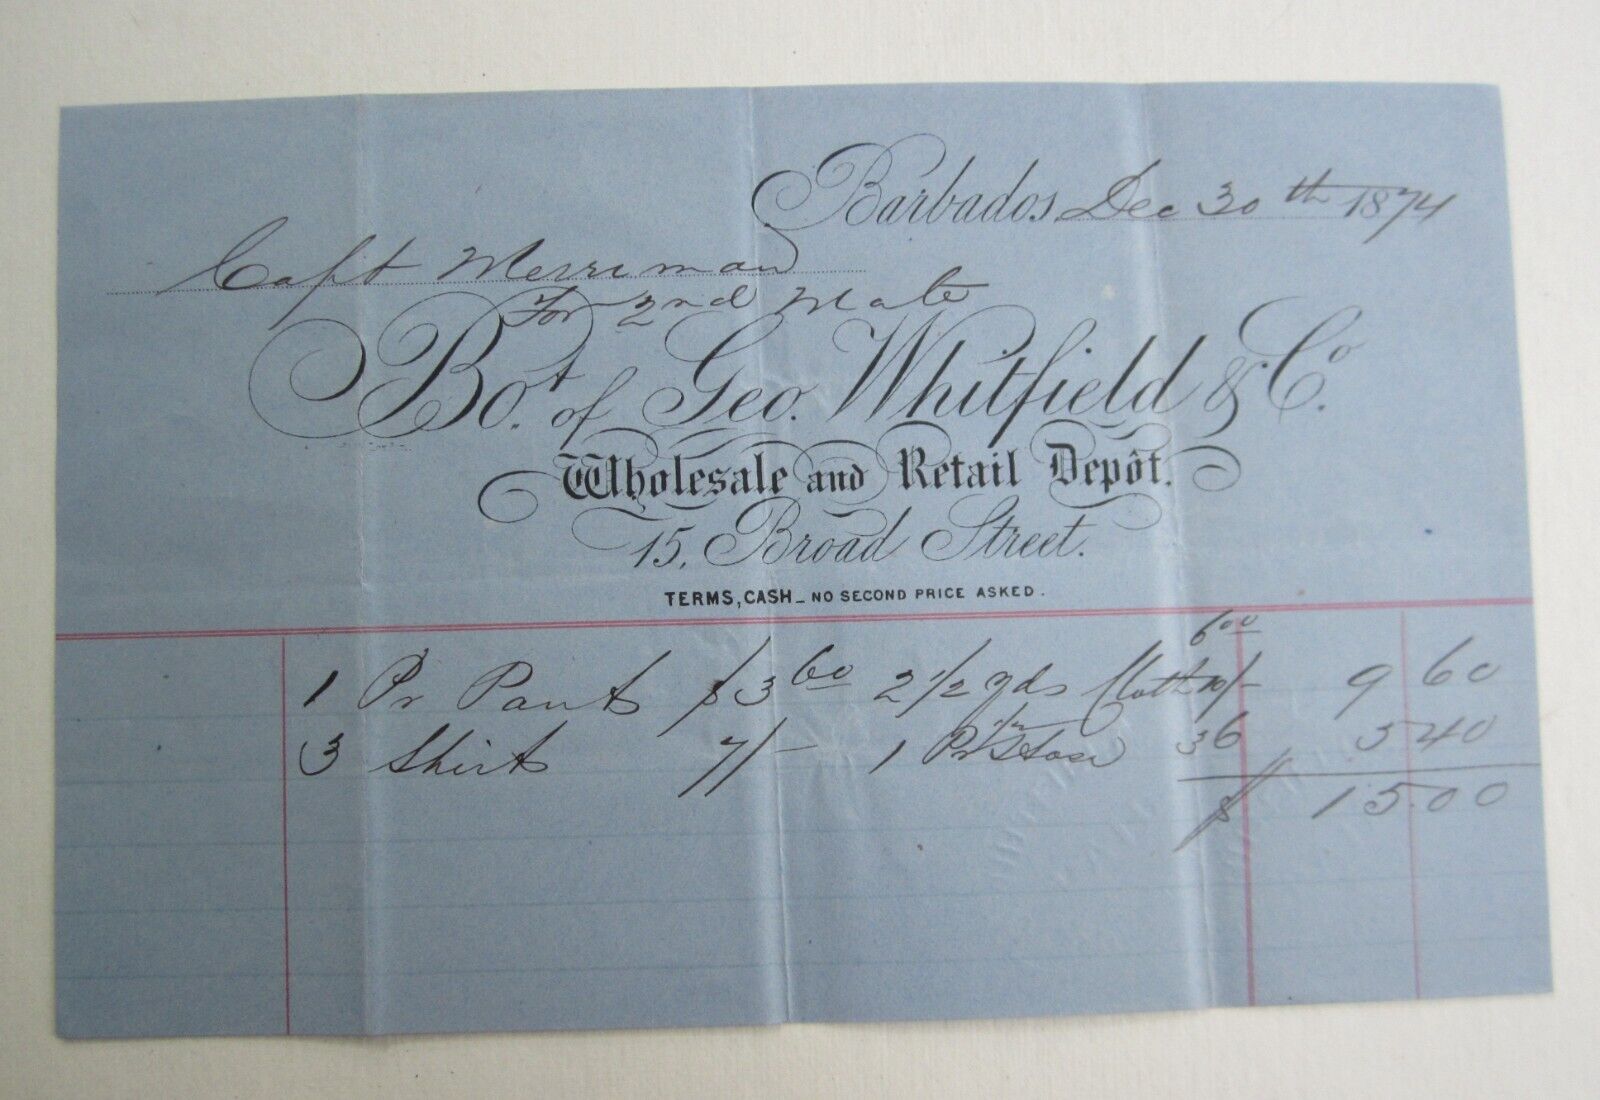 Barbados, Dec 30th 1874
Capt Merriman
For 2nd Mate
Bo.t of Geo. Whitfield & Co.
Wholesale and Retail Depôt.
15, Broad Street.
TERMS, CASH_ NO SECOND PRICE ASKED.
6 00
1 Pr Pants $3 60 2 1/2 yds Cloth 10/- 9 60
3 Shirts 7/- 1 Pr 36 5 40
$ 15.00